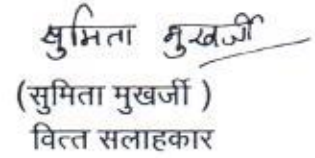 सुमिता मुखर्जी
(सुमिता मुखर्जी )
वित्त सलाहकार